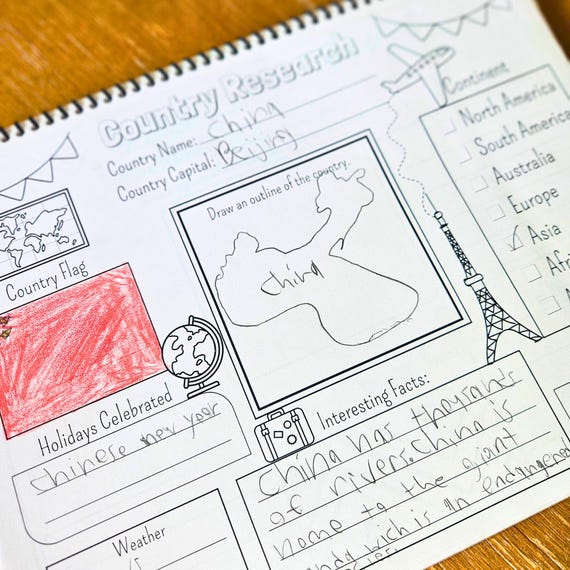 Country Research
Country Name: China
Country Capital: Beijing
Continent
North America
South America
Australia
Europe
Asia
Draw an outline of the country.
China
Country Flag
Holidays Celebrated
Chinese new year
Interesting Facts:
China has thousands
of rivers. China is
home to the giant
wich is an endangered
Weather